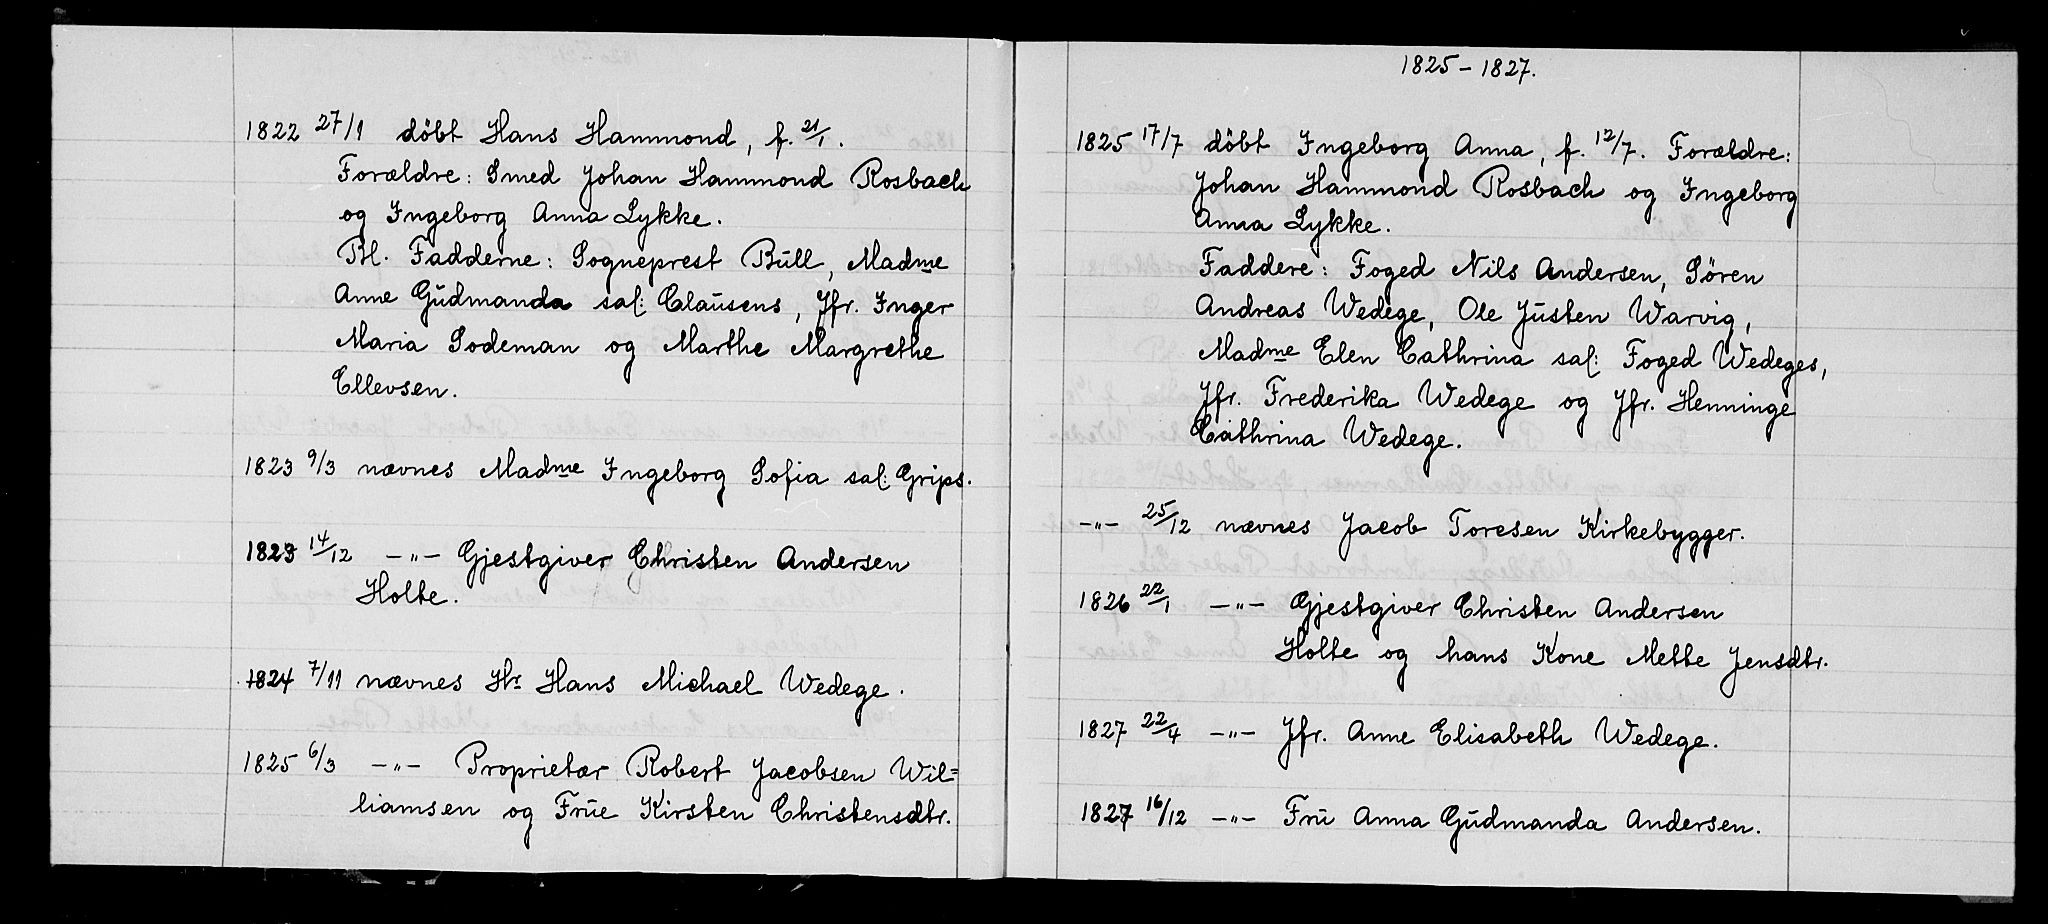 1822 27/1 döbt Hans Hammond, f. 21/1.
Forældre: Smed Johan Hammond Rosbach
og Ingeborg Anna Lykke.
Bl. Fadderne: Sogneprest Büll, Madme
Anne Güdmanda sal: Claüsens, Jfr. Inger
Maria Sodeman og Marthe Margrethe
Ellevsen.
1823 9/3 nævnes Madme Ingeborg Sofia sal: Grips.
1823 14/12 -„- Gjestgiver Christen Andersen
Holte.
1824 7/11 nævnes Hr Hans Michael Wedege.
1825 6/3 -„- Proprietær Robert Jacobsen Wil=
liamsen og Früe Kirsten Christensdtr.
1825 - 1827.
1825 17/7 döbt Ingeborg Anna, f. 12/7. Forældre:
Johan Hammond Rosbach og Ingeborg
Anna Lykke.
Faddere: Foged Nils Andersen, Sören
Andreas Wedege, Ole Jüsten Warvig,
Madme Elen Cathrina sal: Foged Wedeges,
Jfr. Frederika Wedege og Jfr. Henninge
Cathrina Wedege.
-„- 25/12 nævnes Jacob Toresen Kirkebygger.
1826 22/1 -„- Gjestgiver Christen Andersen
Holte og hans Kone Mette Jensdtr.
1827 22/4 -„- Jfr. Anne Elisabeth Wedege.
1827 16/12 -„- Frü Anna Güdmanda Andersen.